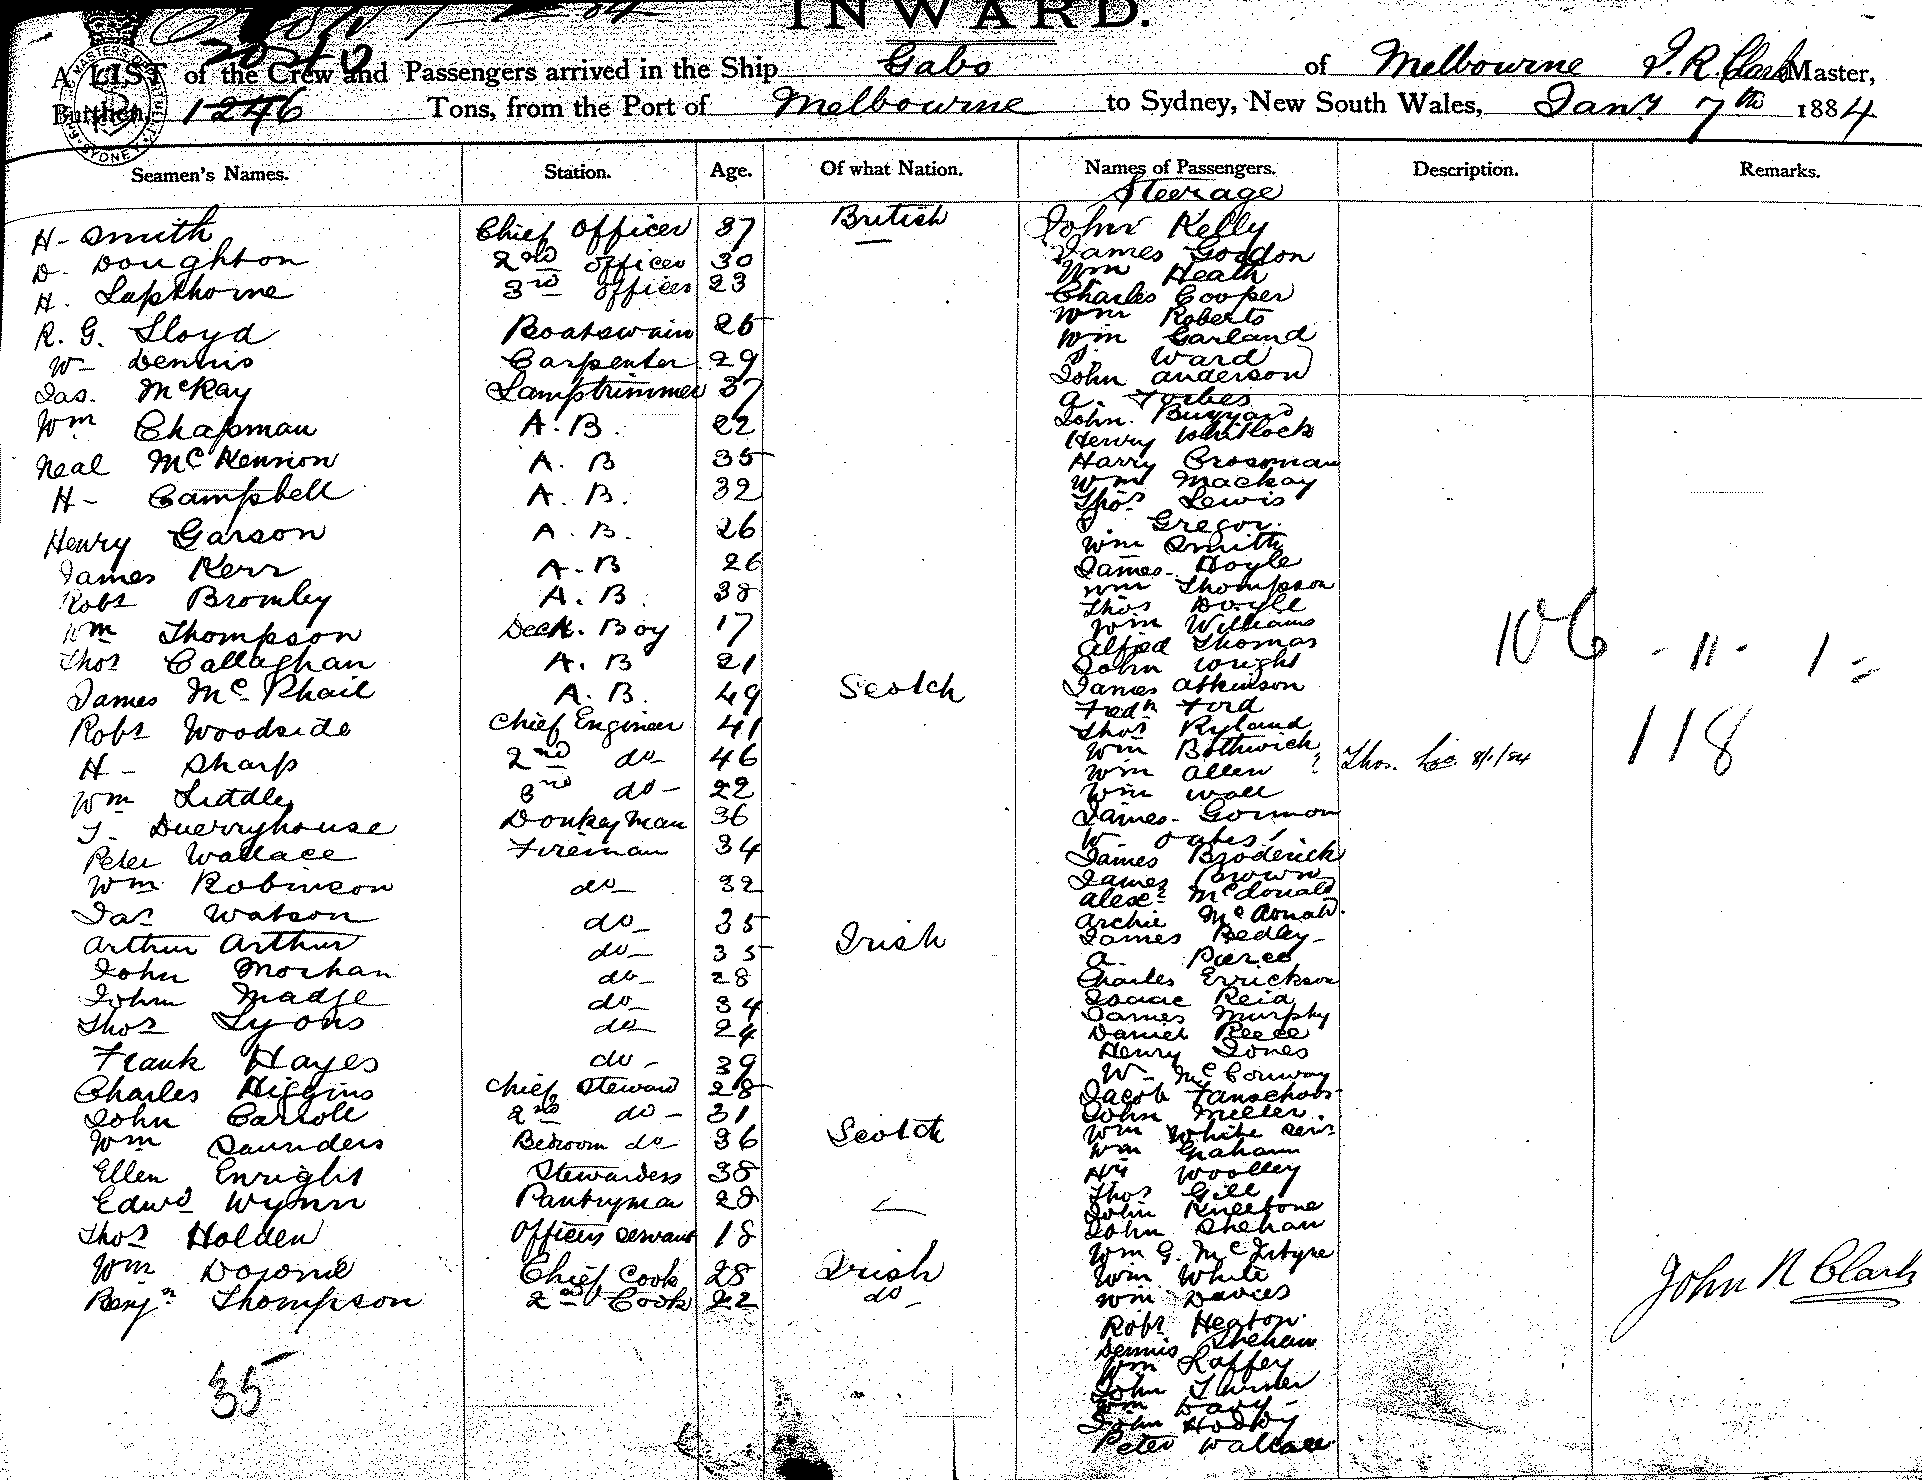 INWARD.
A LIST of the Crew and Passengers arrived in the Ship Gabo of Melbourne J. R. Clark Master,
Burthen, 1246 Tons, from the Port of Melbourne to Sydney, New South Wales, Jany 7th 1884
Seamen's Names. Station. Age. Of what Nation. Names of Passengers. Description. Remarks.
Steerage
H - Smith Chief Officer 37 British John Kelly
D. Doughton 2nd officer 30 James Gordon
Wm Heath
H. Lapthorne 3rd officer 23 Charles Cooper
Wm Roberts
R. G. Lloyd Boatswain 25 Wm Garland
W - Dennis Carpenter 29 Ward
John Anderson
Jas. McKay Lamptrimmer 37 A. Forbes
Wm Chapman A.B. 22 John
Henry Whitlock
Neal McKennon A.B 35 Harry Crossman
Wm Mackay
H - Campbell A.B. 32 Thos Lewis
Gregor.
Henry Garson A.B. 26 Wm Smith
James Kerr A.B 26 James Hoyle
Wm Thompson
Robt Bromley A.B. 38 Thos Doyle
Wm Thompson Deck Boy 17 Wm Williams
Alfred Thomas
106 - 11 - 1 =
Thos Callaghan A.B 21 John Wright
James McPhail A.B. 49 Scotch James Atkinson
Fredk Ford
Robt Woodside Chief Engineer 41 Thos Ryland
118
Wm Bothwick
H - Sharp 2nd do 46 Wm Allen ? Thos. Lee 8/1/84
Wm Liddle 3rd do - 22 Wm Wall
James Gorman
J - Duerryhouse Donkeyman 36 W Oates
Peter Wallace Fireman 34 James Broderick
James Brown
Wm Robinson do 32 Alexr McDonald
Jas Watson do 35 Archie McDonald.
James Bedley
Arthur Arthur do 35 Irish A. Pierce
John Morhan do 28 Charles Errickson
John Madge do 34 Isaac Reid
James Murphy
Thos Lyons do 24 Daniel Reece
Henry Jones
Frank Hayes do - 39 W - McConway
Charles Higgins Chief Steward 28 Jacob
John Carroll 2nd do - 31 John Miller.
Wm White senr
Wm Saunders Bedroom do 36 Scotch Wm Graham
Hy Woolley
Ellen Enright Stewardess 38 Thos Gill
Edwd Wynn Pantryman 28 John Kneebone
John Shehan
Thos Holden Officers servant 18 Wm G. McIntyre
Wm Chief Cook 28 Irish Wm White
Benjn Thompson 2nd Cook 22 do - Wm Davies
John R Clark
Robt Heaton.
Dennis Shehan
Wm Laffey
35
John Turner
Wm Davy
John
Peter Wallace